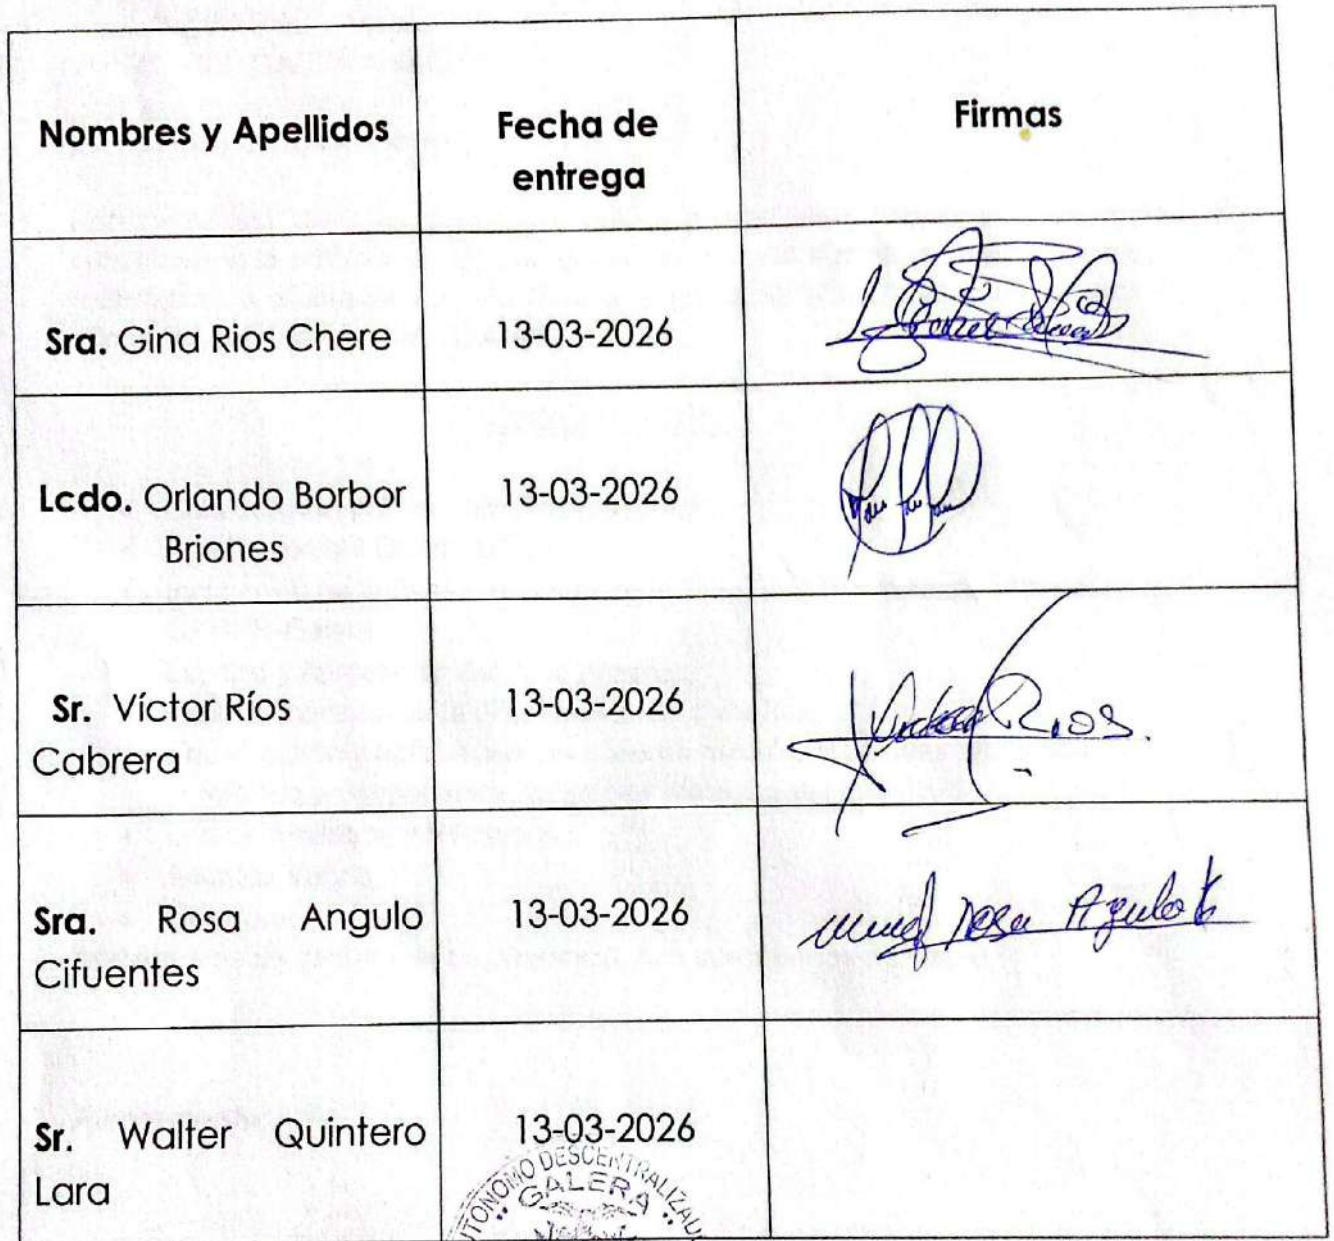 Nombres y Apellidos
Fecha de
entrega
Firmas
Sra. Gina Rios Chere
13-03-2026
Lcdo. Orlando Borbor
Briones
13-03-2026
Sr. Víctor Ríos
Cabrera
13-03-2026
Rios.
Sra. Rosa Angulo
Cifuentes
13-03-2026
Rosa
Sr. Walter Quintero
Lara
13-03-2026
DESCENTRALIZAD
GALERA